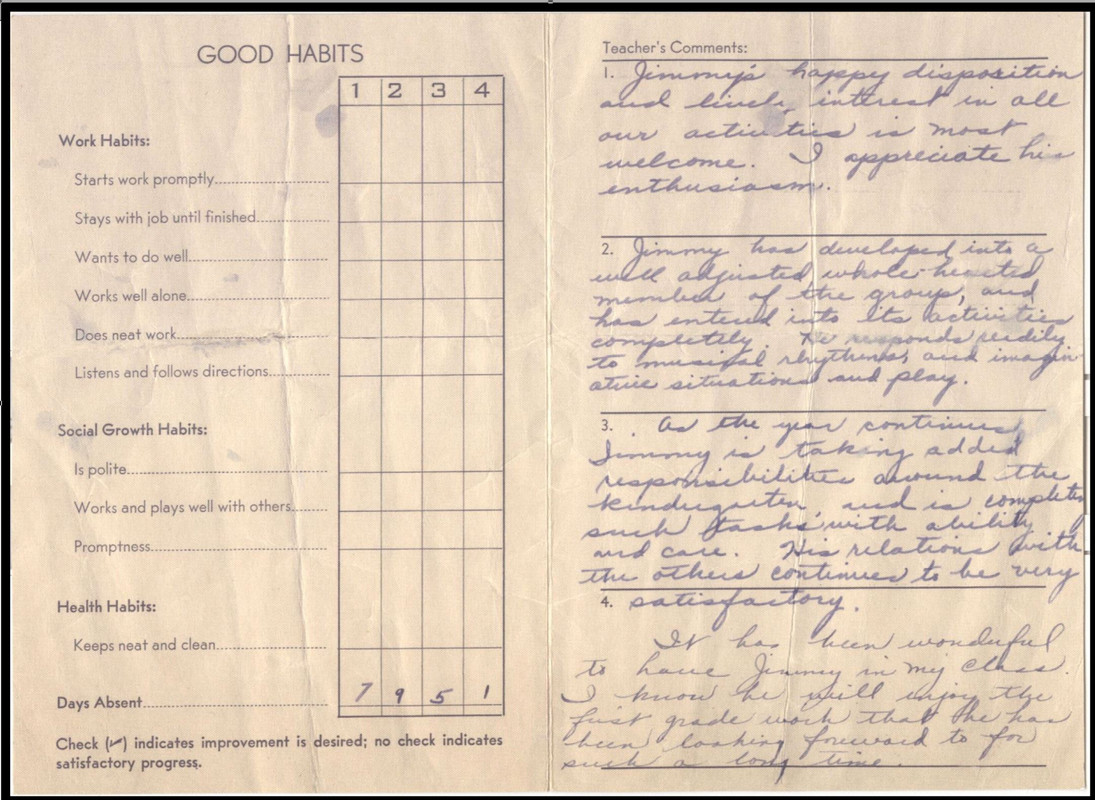 GOOD HABITS
1 2 3 4
Work Habits:
Starts work promptly
Stays with job until finished
Wants to do well
Works well alone
Does neat work
Listens and follows directions
Social Growth Habits:
Is polite
Works and plays well with others
Promptness
Health Habits:
Keeps neat and clean
Days Absent 7 9 5 1
Check (✓) indicates improvement is desired; no check indicates
satisfactory progress.
Teacher's Comments:
1. Jimmy's happy disposition
and lively interest in all
our activities is most
welcome. I appreciate his
enthusiasm.
2. Jimmy has developed into a
well adjusted whole-hearted
member of the group, and
has entered into its activities
completely. He responds readily
to musical rhythms, and imagin-
ative situations and play.
3. As the year continues,
Jimmy is taking added
responsibilities around the
kindergarten, and is completing
such tasks with ability
and care. His relations with
the others continues to be very
satisfactory.
4.
It has been wonderful
to have Jimmy in my class.
I know he will enjoy the
first grade work that he has
been looking foreward to for
such a long time.